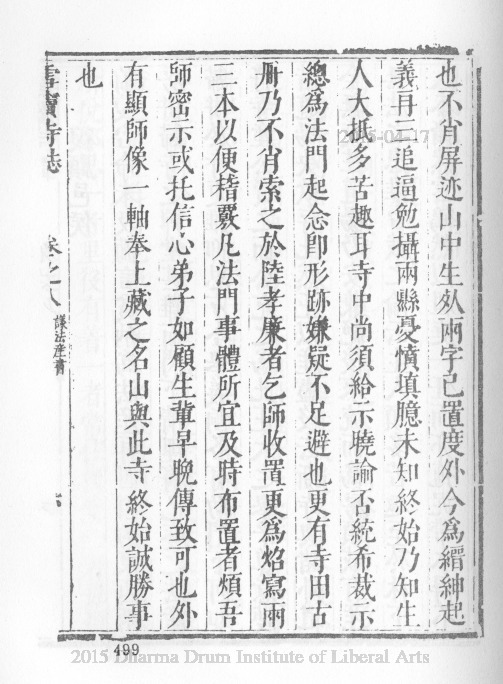 也不肖屏迹山中生死兩字已置度外今為縉紳起
義再三追逼勉攝兩縣憂憤填臆未知終始乃知生
人大抵多苦趣耳寺中尚須給示曉諭否統希裁示
總為法門起念卽形跡嫌疑不足避也更有寺田古
冊乃不肖索之於陸孝廉者乞師收置更為焰寫兩
三本以便稽覈凡法門事體所宜及時布置者煩吾
師密示或托信心弟子如顧生輩早晚傳致可也外
有顯師像一軸奉上藏之名山與此寺終始誠勝事
也
雪竇寺誌 卷之八 護法産書 六
2015-04-17
499
2015 Dharma Drum Institute of Liberal Arts